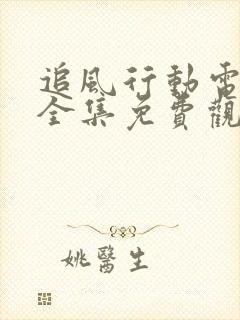 追風行動電
全集免費觀
姚醫生